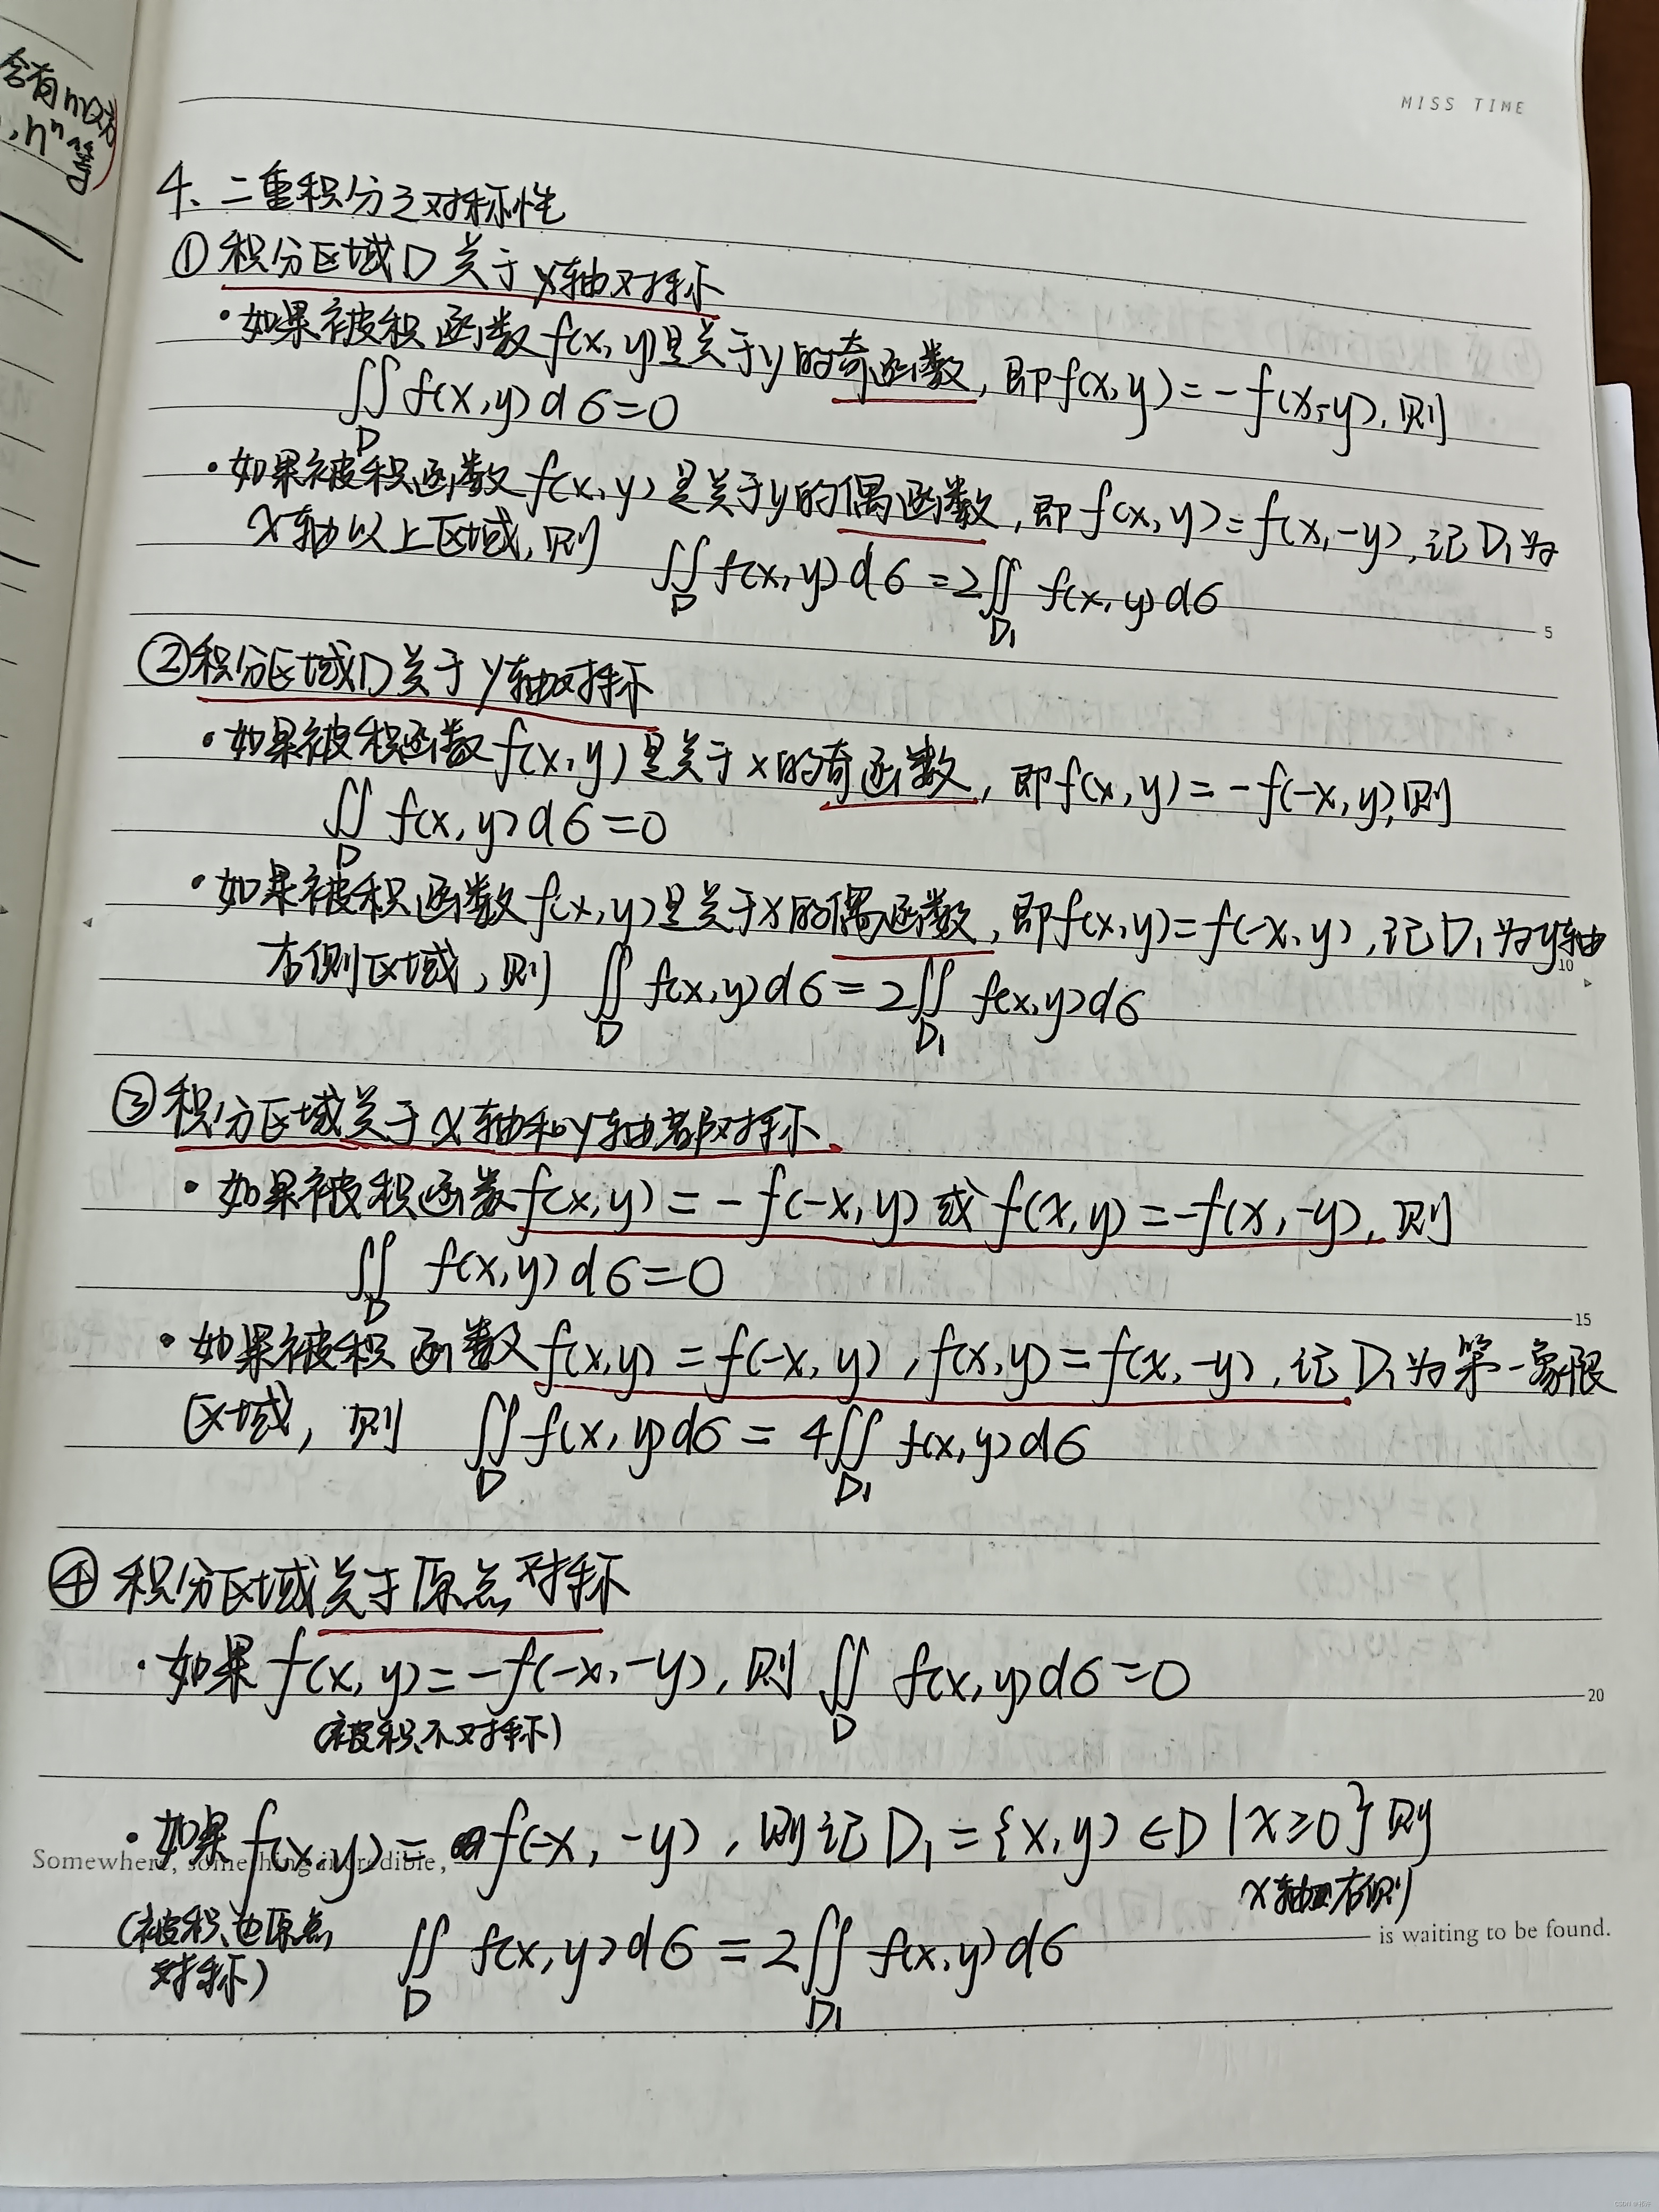 含有n次方
,nⁿ等
MISS TIME
4、二重积分之对称性
①积分区域D关于x轴对称
·如果被积函数f(x,y)是关于y的奇函数,即f(x,y)=-f(x,-y),则
∬_D f(x,y)dσ=0
·如果被积函数f(x,y)是关于y的偶函数,即f(x,y)=f(x,-y),记D₁为
x轴以上区域,则 ∬_D f(x,y)dσ=2∬_D₁ f(x,y)dσ
5
②积分区域D关于y轴对称
·如果被积函数f(x,y)是关于x的奇函数,即f(x,y)=-f(-x,y),则
∬_D f(x,y)dσ=0
·如果被积函数f(x,y)是关于x的偶函数,即f(x,y)=f(-x,y),记D₁为y轴
右侧区域,则 ∬_D f(x,y)dσ=2∬_D₁ f(x,y)dσ
10
③积分区域关于x轴和y轴都对称
·如果被积函数f(x,y)=-f(-x,y)或f(x,y)=-f(x,-y),则
∬_D f(x,y)dσ=0
15
·如果被积函数f(x,y)=f(-x,y),f(x,y)=f(x,-y),记D₁为第一象限
区域,则 ∬_D f(x,y)dσ=4∬_D₁ f(x,y)dσ
④积分区域关于原点对称
·如果f(x,y)=-f(-x,-y),则∬_D f(x,y)dσ=0
20
(被积不对称)
·如果f(x,y)=f(-x,-y),则记D₁={x,y)∈D|x≥0}则
Somewhere, something incredible,
x轴右侧
(被积也原点
对称)
∬_D f(x,y)dσ=2∬_D₁ f(x,y)dσ
is waiting to be found.